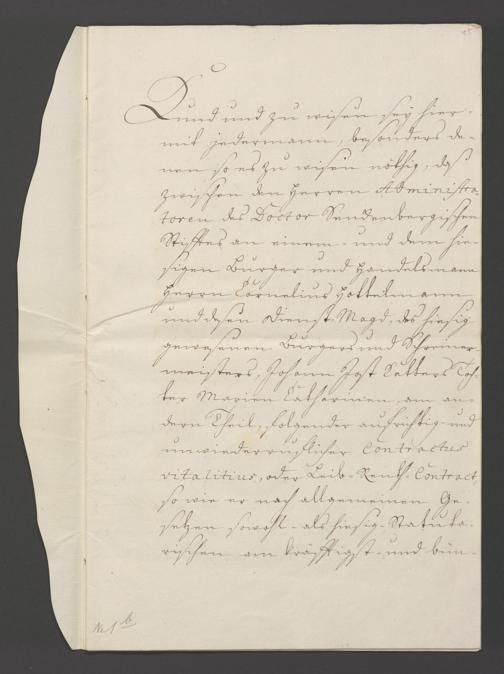 15
Kund und zu wisen sey hier-
mit jedermann, besonders de-
nen so es zu wisen nöthig, daß
zwischen den Herren Administra-
toren des Doctor Senckenbergischen
Stifftes an einem- und dem hie-
sigen Burger und Handelsmann
Herrn Cornelius Hollelmann
und desen Dienst-Magd, des hiesig
gewesenen Burgers und Schreiner
meisters, Johann Jost Kelbers Toch-
ter Marien Catharinen, am an-
dern Theil, folgender aufrichtig- und
unwiederrufflicher Contractus
vitalitius, oder Leib-Renth-Contract,
so wie er nach allgemeinen Ge-
setzen sowohl- als hiesig-Statuta-
rischen am kräfftigst- und bün-
No 1 b